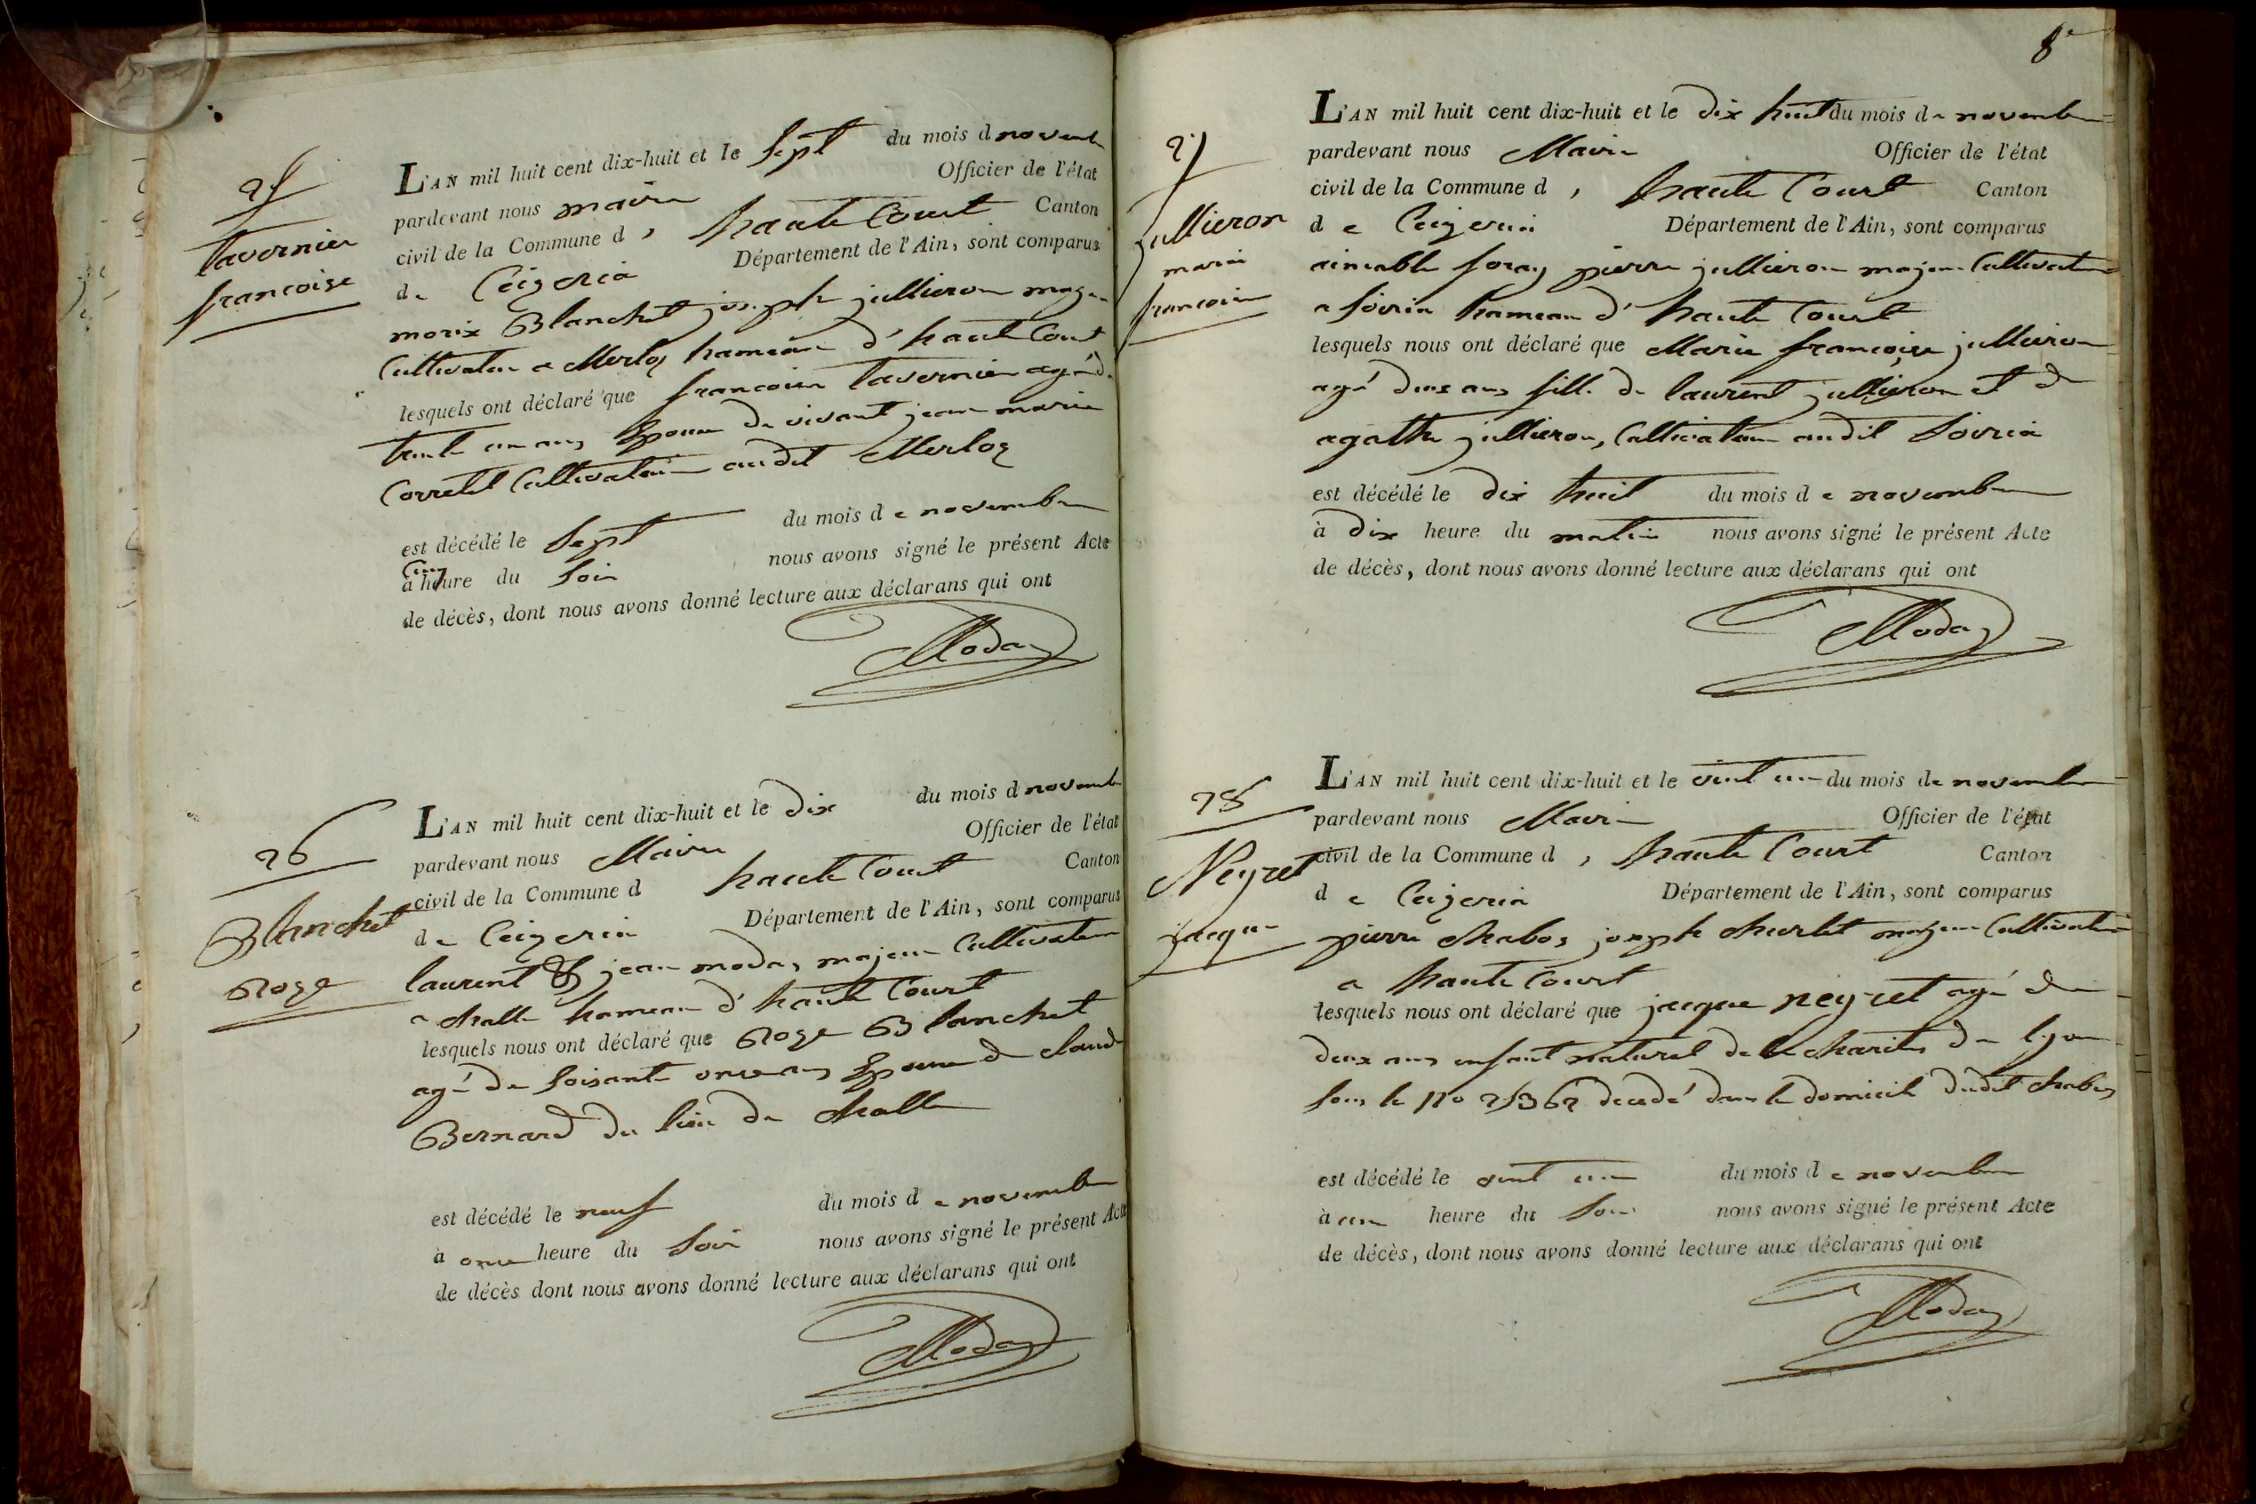 25
tavernier
francoise
L'AN mil huit cent dix-huit et le sept du mois d novemb
pardevant nous maire Officier de l'état
civil de la Commune d , haute Court Canton
de Ceizeria Département de l'Ain, sont comparus
morix Blanchet joseph jullieron majeur
Cultivateur a Merloz hameau d'haute Court
lesquels ont déclaré que francoise tavernier agé de
trente un ans Epouse de vivant jean marie
Corretel Cultivateur audit Merloz
est décédé le Sept du mois de novembre
à Cinq heure du Soir nous avons signé le présent Acte
de décès, dont nous avons donné lecture aux déclarans qui ont
Moday
26
Blanchet
Roze
L'AN mil huit cent dix-huit et le dix du mois d novemb
pardevant nous Maire Officier de l'état
civil de la Commune d haute Court Canton
de Ceizeria Département de l'Ain, sont comparus
laurent & jean moday majeur Cultivateur
a challe hameau d'haute Court
lesquels nous ont déclaré que Roze Blanchet
agé de soisante onze ans Epouse de claude
Bernard du lieu de challe
est décédé le neuf du mois de novembre
à onze heure du Soir nous avons signé le présent Acte
de décès dont nous avons donné lecture aux déclarans qui ont
Moday
8e
27
jullieron
marie
francoise
L'AN mil huit cent dix-huit et le dix huit du mois de novembre
pardevant nous Maire Officier de l'état
civil de la Commune d , haute Court Canton
de Ceizeria Département de l'Ain, sont comparus
aimable foray pierre jullieron majeur Cultivateur
a Soiria hameau d'haute Court
lesquels nous ont déclaré que Marie francoise jullieron
agé deux ans fille de laurent jullieron et de
agathe jullieron, Cultivateur audit Soiria
est décédé le dix huit du mois de novembre
à dix heure du matin nous avons signé le présent Acte
de décès, dont nous avons donné lecture aux déclarans qui ont
Moday
28
Neyret
jacque
L'AN mil huit cent dix-huit et le vint un du mois de novembre
pardevant nous Maire Officier de l'état
civil de la Commune d , haute Court Canton
de Ceizeria Département de l'Ain, sont comparus
pierre chaboz joseph churlet majeur Cultivateur
a haute Court
lesquels nous ont déclaré que jacque neyret agé de
deux ans enfant naturel de la charité de lyon
sous le no 25362 decedé dans le domicile dudit chaboz
est décédé le vint un du mois de novembre
à un heure du Soir nous avons signé le présent Acte
de décès, dont nous avons donné lecture aux déclarans qui ont
Moday